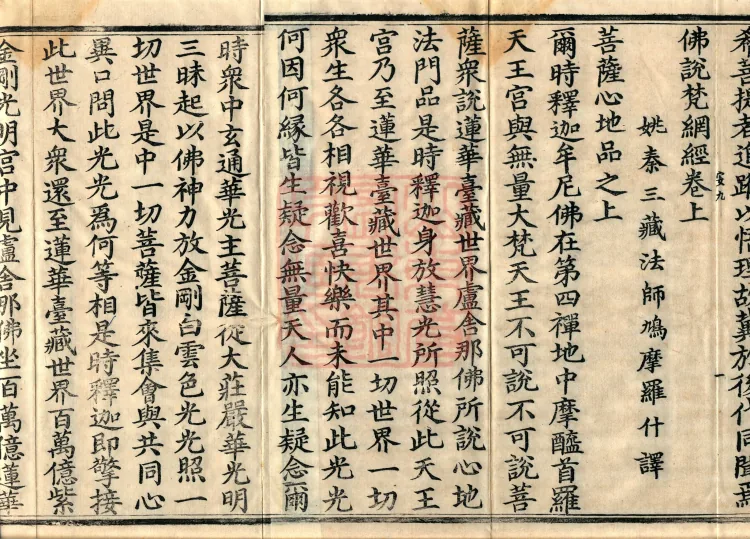 希菩提者追蹤以悟理故冀於後代同聞焉
佛說梵網經卷上
姚秦三藏法師鳩摩羅什譯
菩薩心地品之上
爾時釋迦牟尼佛在第四禪地中摩醯首羅
天王宮與無量大梵天王不可說不可說菩
薩衆說蓮華臺藏世界盧舍那佛所說心地
法門品是時釋迦身放慧光所照從此天王
宮乃至蓮華臺藏世界其中一切世界一切
衆生各各相視歡喜快樂而未能知此光光
何因何緣皆生疑念無量天人亦生疑念爾
時衆中玄通華光主菩薩從大莊嚴華光明
三昧起以佛神力放金剛白雲色光光照一
切世界是中一切菩薩皆來集會與共同心
異口問此光光為何等相是時釋迦即擎接
此世界大衆還至蓮華臺藏世界百萬億紫
金剛光明宮中見盧舍那佛坐百萬億蓮華